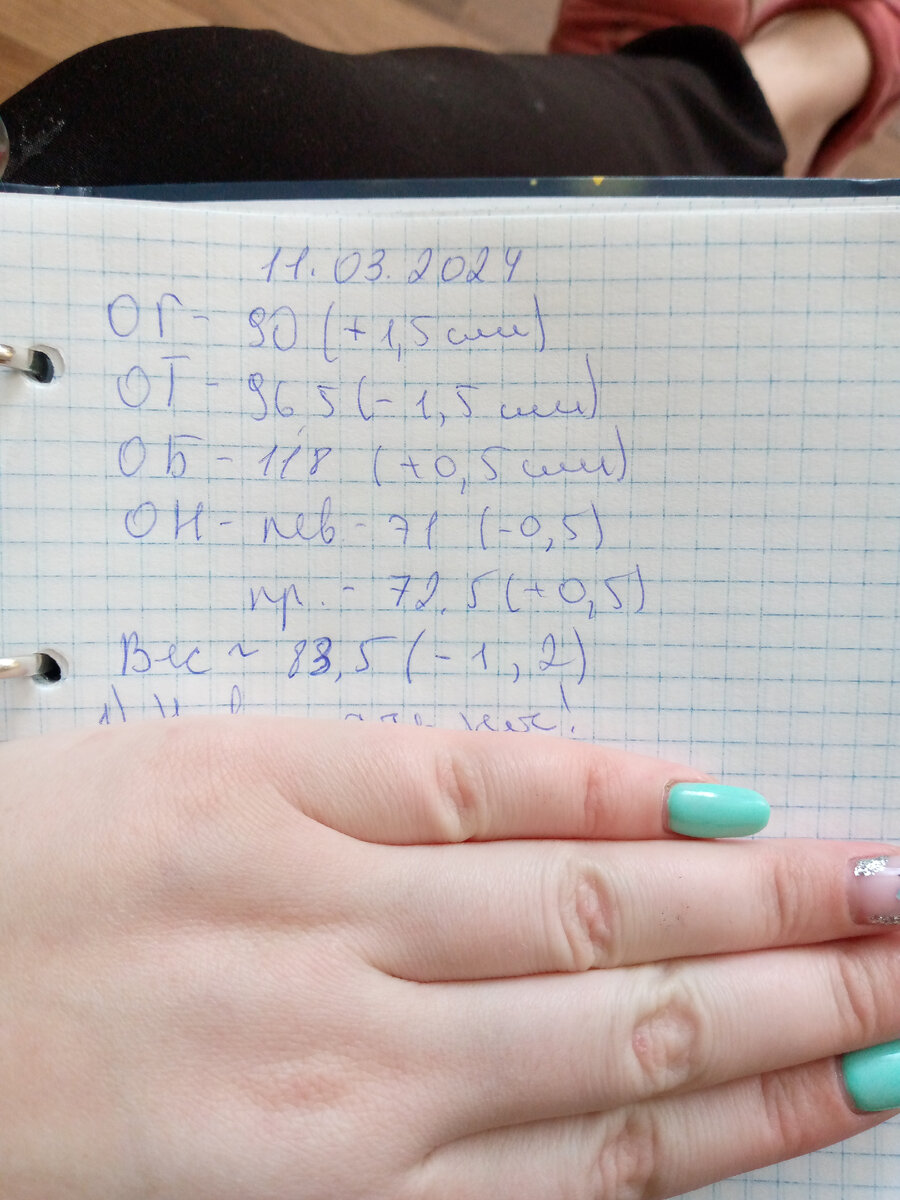 11.03.2024
ОГ - 90 (+1,5 см)
ОТ - 96,5 (-1,5 см)
ОБ - 118 (+0,5 см)
ОН - лев - 71 (-0,5)
пр. - 72,5 (+0,5)
Вес ~ 83,5 (-1,2)
1)